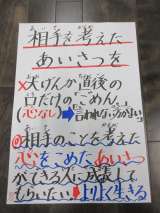 相手を考えた
あいさつを
×夫げんか直後の
口だけの「ごめん」
(心なし)➡言われないうがよい
◎相手のことを考えた
心をこめたあいさつ
ができる人に成長して
もらいたい➡よりよく生きる